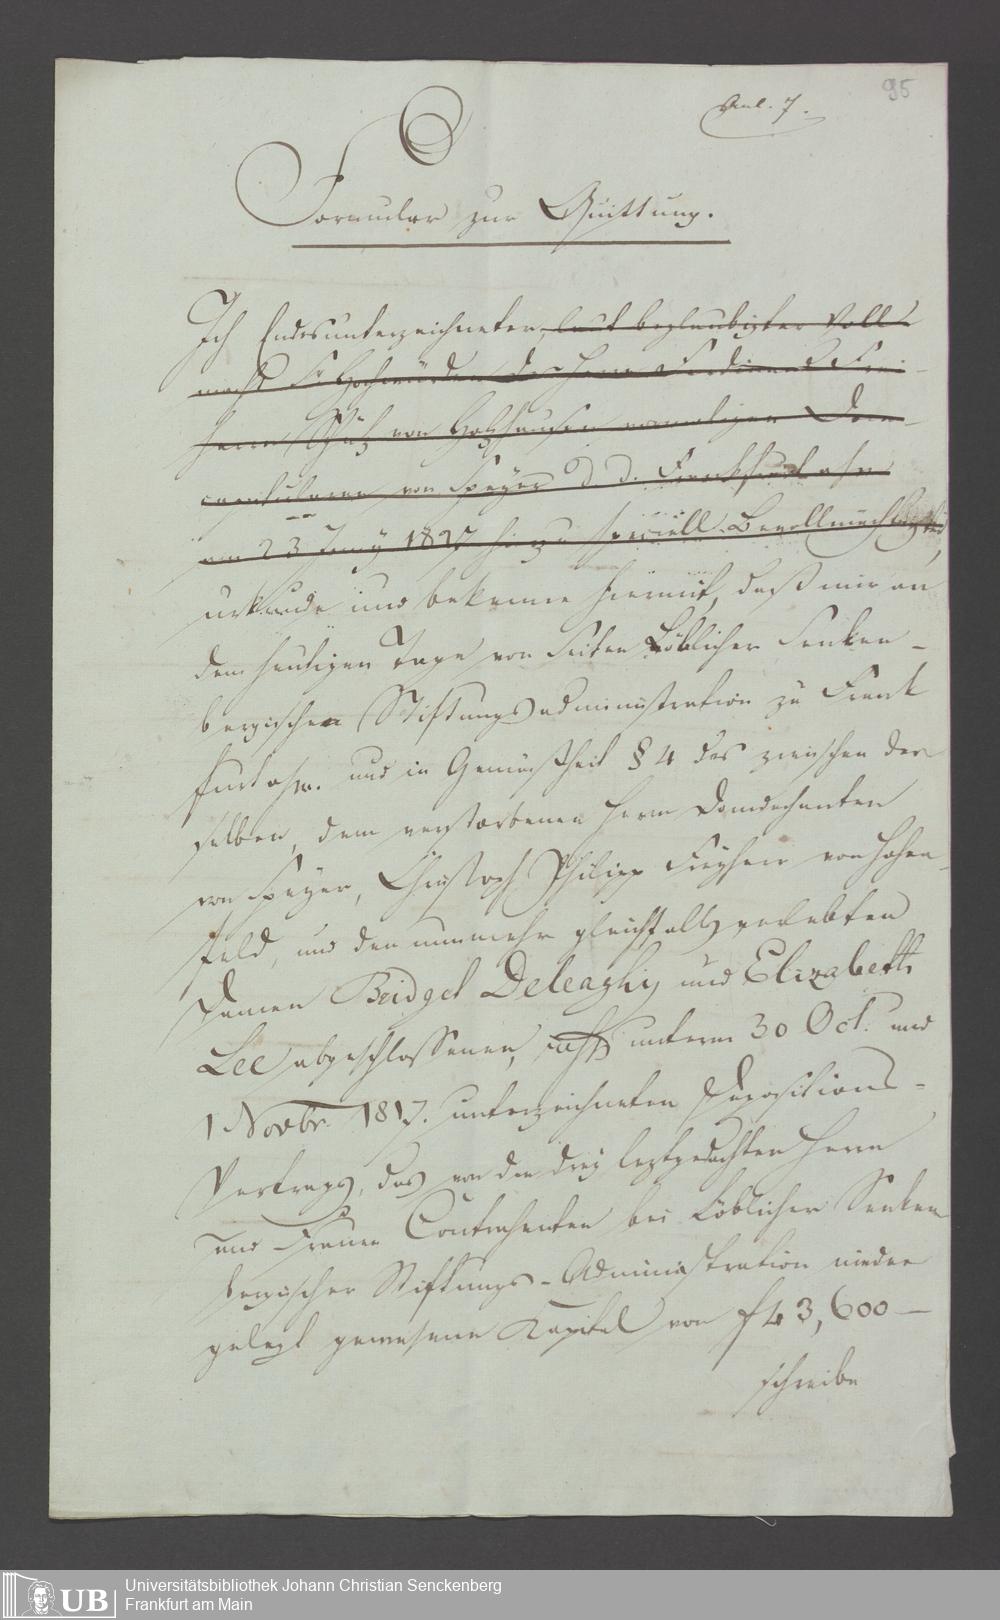 95
Anl. 7.
Formular zur Quittung.
Ich Endesunterzeichneter, laut beglaubigter Voll-
macht Sr Hochwürden des Herrn Ferdinand Frei-
herrn Schütz von Holzhausen vormaligen Dom-
capitularen von Speyer d. d. Frankfurt a/m
am 23 Juny 1827 hiezu speciell Bevollmächtigter,
urkunde und bekenne hiermit, daß mir an
dem heutigen Tage von Seiten Löblicher Senken-
bergischen Stiftungsadministration zu Frank
furt a/m. und in Gemäsheit § 4 des zwischen der
selben, dem verstorbenen Herrn Domdechanten
von Speyer, Christoph Philipp Freyherr von Hohen-
feld, und den nunmehr gleichfalls verlebten
Damen Bridget Deleazhy und Elizabeth
Lee abgeschlossenen, unterm 30 Oct. und
1 Novbr. 1817. unterzeichneten Depositions-
Vertrags, das von den drey letztgedachten Herrn
und Frauen Contrahenten bei Löblicher Senken
bergischer Stiftungs-Administration nieder
gelegt gewesene Kapital von f 43,600 —
schreibe
UB
Universitätsbibliothek Johann Christian Senckenberg
Frankfurt am Main